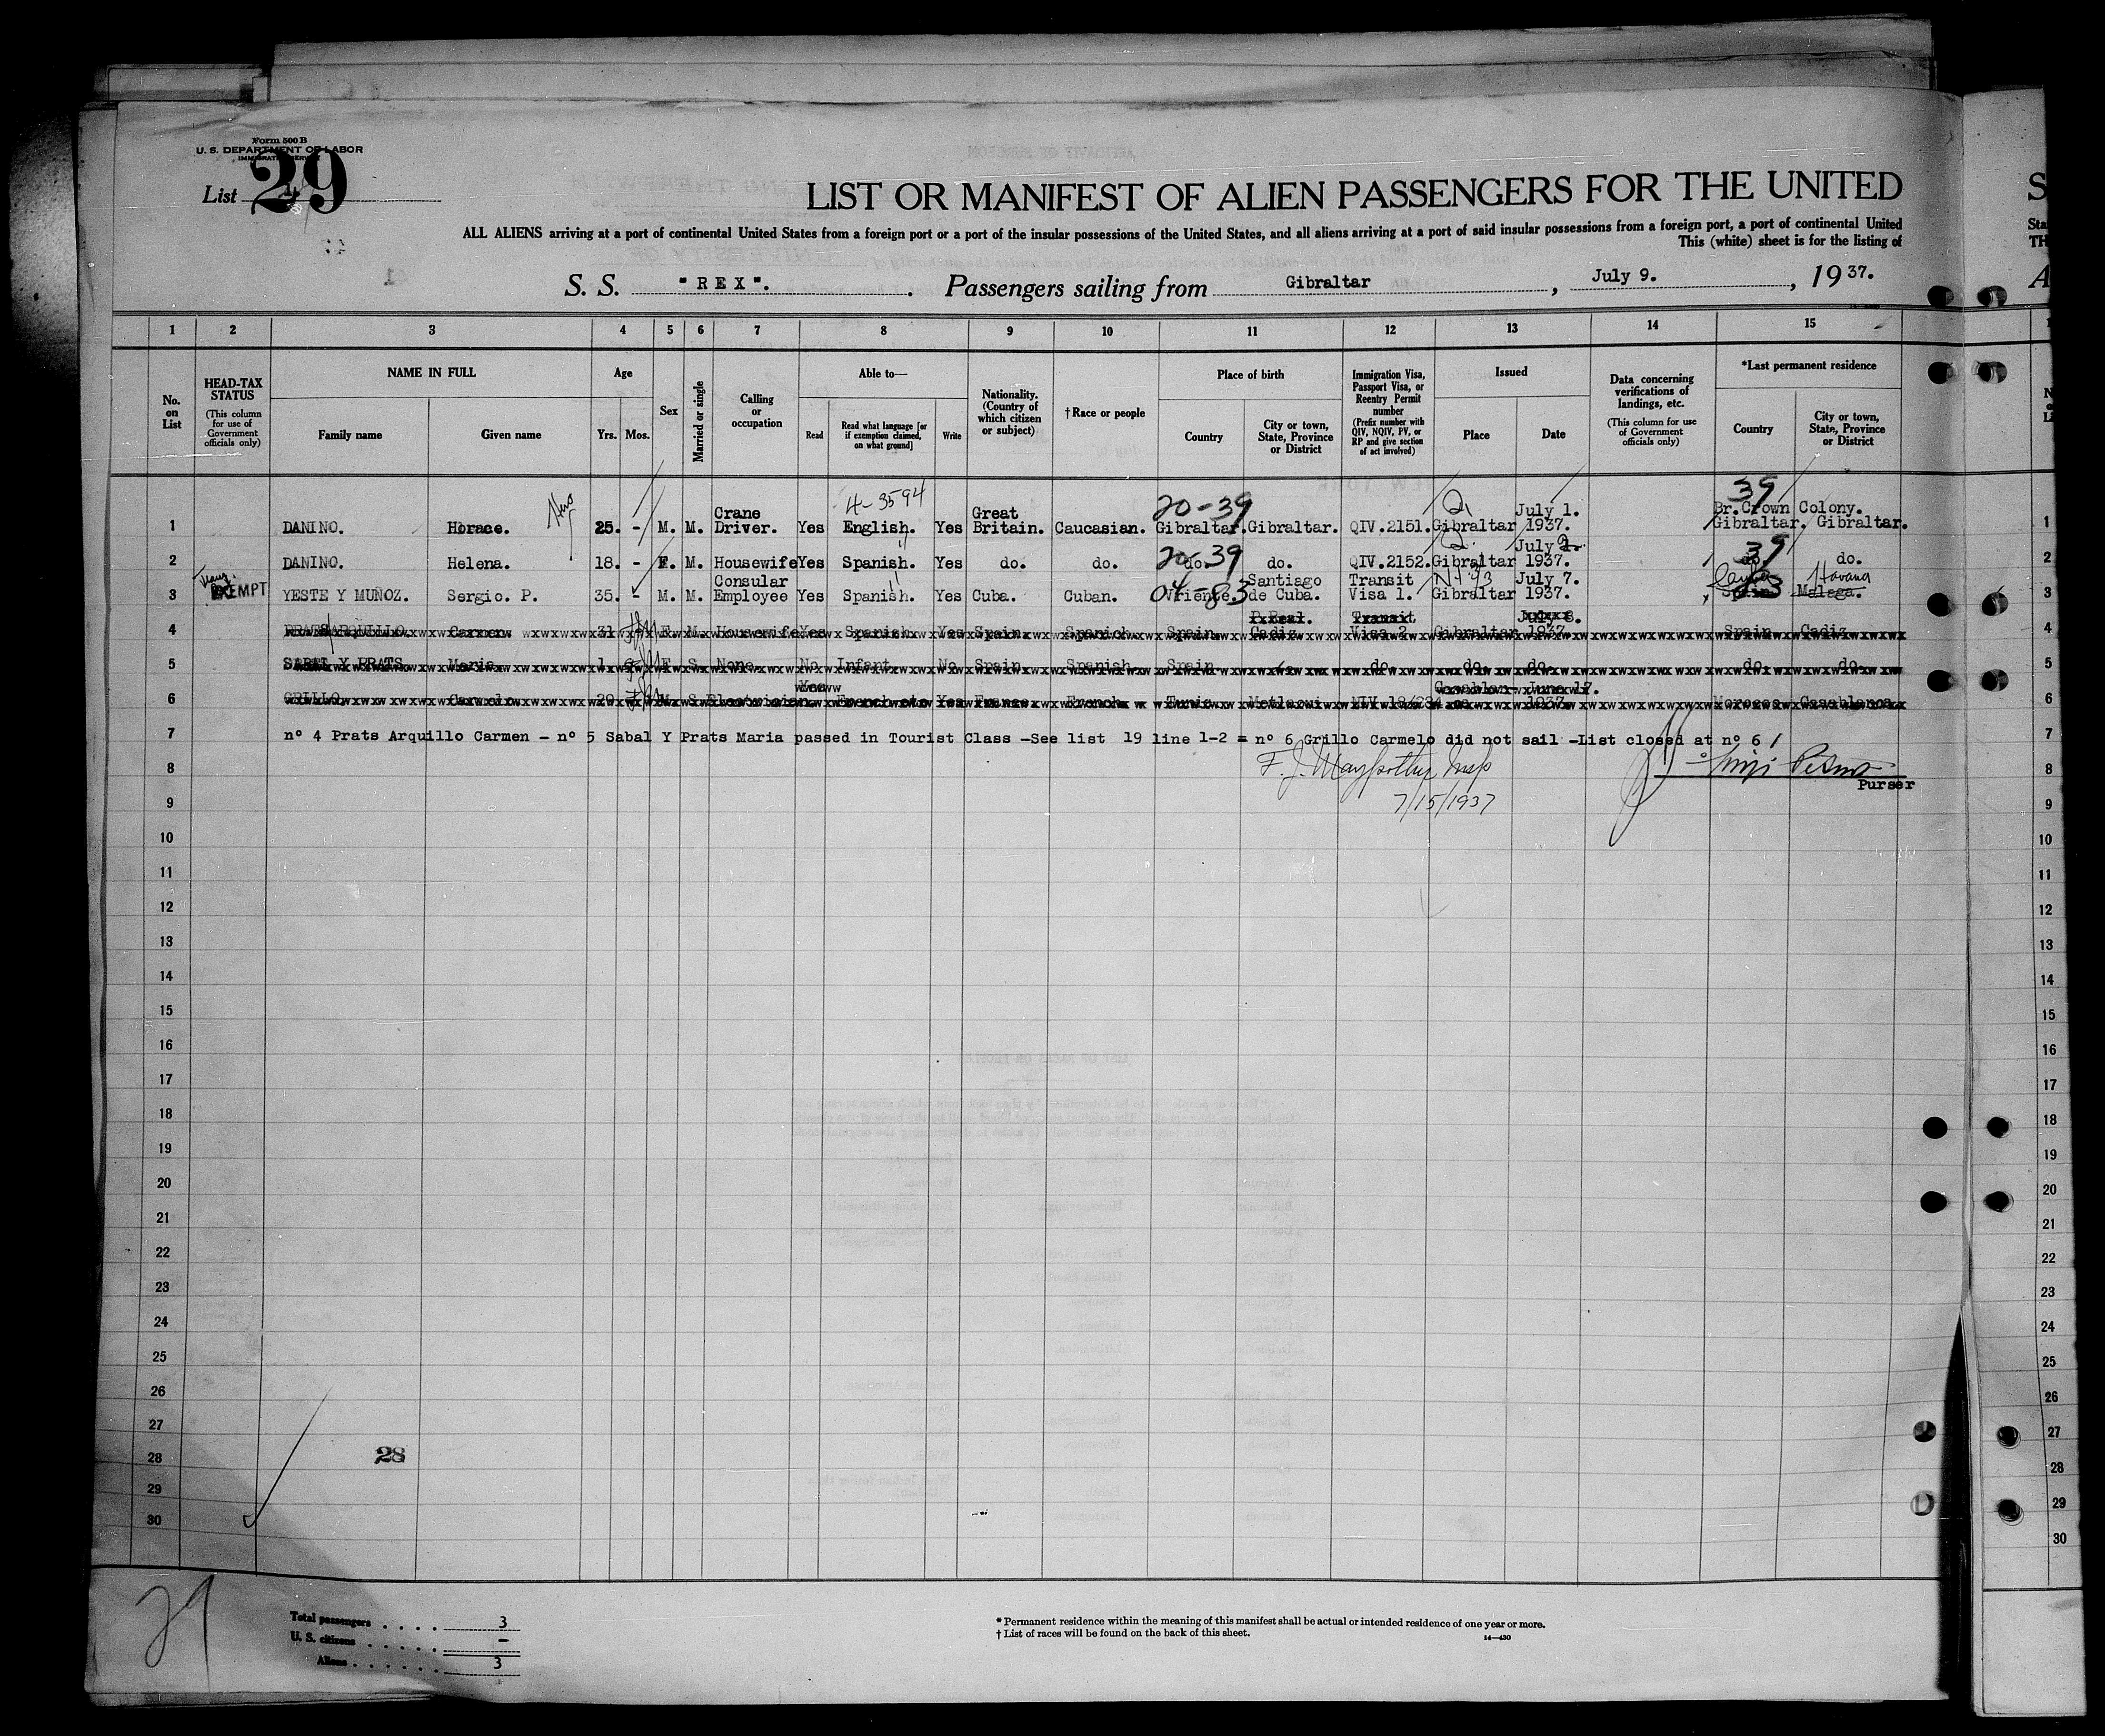 Form 500 B
U. S. DEPARTMENT OF LABOR
IMMIGRATION SERVICE
List 29
LIST OR MANIFEST OF ALIEN PASSENGERS FOR THE UNITED
ALL ALIENS arriving at a port of continental United States from a foreign port or a port of the insular possessions of the United States, and all aliens arriving at a port of said insular possessions from a foreign port, a port of continental United
This (white) sheet is for the listing of
S. S. "REX". Passengers sailing from Gibraltar, July 9., 1937.
1 2 3 4 5 6 7 8 9 10 11 12 13 14 15
No. on List
HEAD-TAX STATUS (This column for use of Government officials only)
NAME IN FULL Family name Given name
Age Yrs. Mos.
Sex
Married or single
Calling or occupation
Able to— Read Read what language [or if exemption claimed, on what ground] Write
Nationality. (Country of which citizen or subject)
†Race or people
Place of birth Country City or town, State, Province or District
Immigration Visa, Passport Visa, or Reentry Permit number (Prefix number with QIV, NQIV, PV, or RP and give section of act involved)
Issued Place Date
Data concerning verifications of landings, etc. (This column for use of Government officials only)
*Last permanent residence Country City or town, State, Province or District
4-3594 20-39 39
1 DANINO. Horace. 25. - M. M. Crane Driver. Yes English. Yes Great Britain. Caucasian. Gibraltar. Gibraltar. QIV.2151. Gibraltar July 1. 1937. Br.Crown Colony. Gibraltar. Gibraltar. 1
20-39 39
2 DANINO. Helena. 18. - F. M. Housewife Yes Spanish. Yes do. do. do. do. QIV.2152. Gibraltar July 2. 1937. do. do. 2
04-83 Havana
3 EXEMPT YESTE Y MUÑOZ. Sergio. P. 35. - M. M. Consular Employee Yes Spanish. Yes Cuba. Cuban. Oriente. Santiago de Cuba. Transit Visa 1. Gibraltar July 7. 1937. Spain Malaga. 3
4 PRATS ARQUILLO Carmen 31 F. M. Housewife Yes Spanish Yes Spain Spanish Spain P.Real. Cadiz Transit Visa 2 Gibraltar July 8. 1937 Spain Cadiz 4
5 SABAL Y PRATS Maria 1 F. S. None No Infant No Spain Spanish Spain do. do. do. do. do. 5
6 GRILLO Carmelo 29 M. S. Electrician Yes French Yes France French Tunis Metlaoui June 17. 1937 Morocco Casablanca 6
7 nº 4 Prats Arquillo Carmen - nº 5 Sabal Y Prats Maria passed in Tourist Class -See list 19 line 1-2 = nº 6 Grillo Carmelo did not sail -List closed at nº 6 / 7
8 Purser 8
9 7/15/1937 9
10 10
11 11
12 12
13 13
14 14
15 15
16 16
17 17
18 18
19 19
20 20
21 21
22 22
23 23
24 24
25 25
26 26
27 27
28 28 28
29 29
30 30
29
Total passengers . . . . 3
U. S. citizens . . . . . -
Aliens . . . . . . 3
* Permanent residence within the meaning of this manifest shall be actual or intended residence of one year or more.
† List of races will be found on the back of this sheet.
14—430